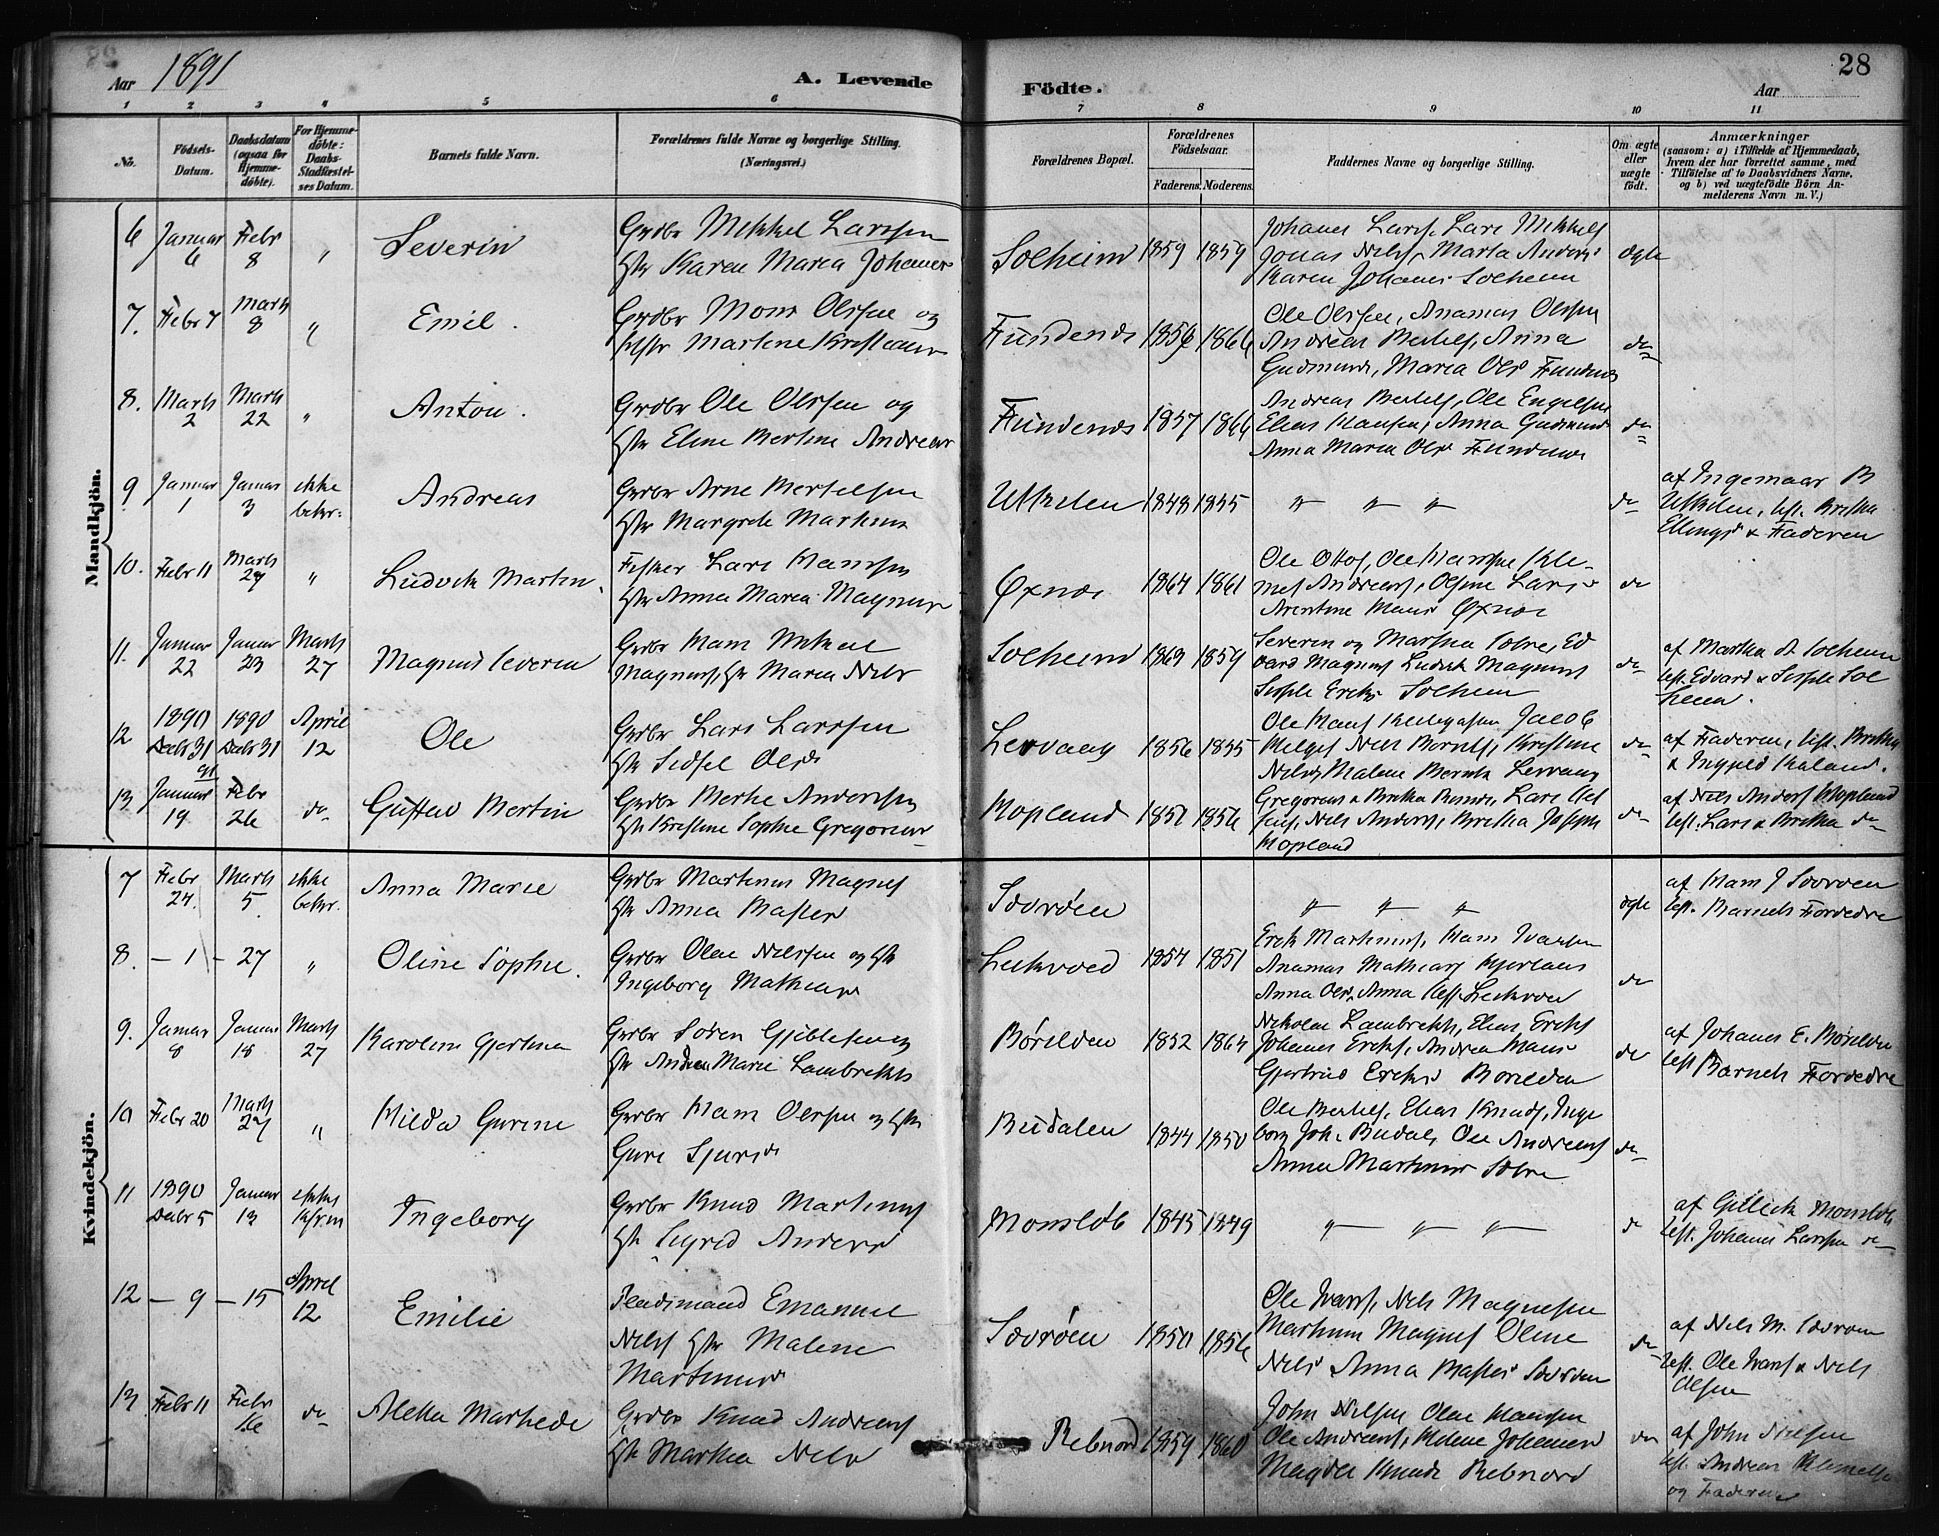 Aar 1891
A. Levende Födte.
Aar
28
1 2 3 4 5 6 7 8 9 10 11
No.
Födsels-Datum.
Daabsdatum (ogsaa for Hjemme-döbte).
For Hjemme-döbte: Daabs-Stadfæstel-ses Datum.
Barnets fulde Navn.
Forældrenes fulde Navne og borgerlige Stilling.
(Næringsvei.)
Forældrenes Bopæl.
Forældrenes Födselsaar.
Faderens. Moderens.
Faddernes Navne og borgerlige Stilling.
Om ægte eller uægte födt.
Anmærkninger
(saasom: a) i Tilfælde af Hjemmedaab,
hvem der har forrettet samme, med
Tilföielse af to Daabsvidners Navne,
og b) ved uægtefödte Börn An-
melderens Navn m. V.)
Mandkjön.
6 Januar 6 Febr 8 " Severin
Grdbr Mikkel Larssen
Hstr Karen Maria Johannes
Solheim 1859 1859
Johanes Larss, Lars Mikkels
Jonas Nils, Marta Anders
Karen Johanes Solheim
ægte
7. Febr 7 Marts 8 " Emil.
Grdbr Mons Olssen og
Martine Kristians
Fundenæs 1856 1866
Ole Olssen, Ananias Olssen
Andreas Bertels, Anna
Gudmunds, Maria Ols Fundenæs
do
8. Marts 2 Marts 22 " Anton.
Grdbr Ole Olssen og
Hstr Eline Bertine Andreas
Fundenæs 1857 1866
Andreas Bertels, Ole Engelsen
Elias Hansen, Anna Gudmunds
Anna Maria Ols Fundenæs
do
9 Januar 1 Januar 3 ikke bekr: Andreas
Grdbr Arne Bertelsen
Hstr Margrete Martinus
Utkilen 1848 1855 " " " do
af Ingemaar B
Utkilen, test. Britha
Ellings & Faderen
10. Febr 11 Marts 27 " Ludvik Martin.
Fisker Lars Hanssen
Hstr Anna Maria Magnus
Øxnæs 1864 1861
Ole Ottos, Ole Hanssen Kle-
met Andreass, Olsine Lars
Arentine Hans Øxnæs
do
11. Januar 22 Januar 23 Marts 27 Magnus Severin
Grdbr Hans Mikal
Magnuss, Hstr Maria Nils
Solheim 1863 1859
Severin og Martha Sæbre, Ed
vard Magnuss Ludvik Magnuss
Eriks Solheim
do
af Martha A Solheim
test. Edvard &
12 1890 Decbr 31 1890 Decbr 31 April 12 Ole
Grdbr Lars Larssen
Hstr Sidsel Ols
Lervaag 1856 1855
Ole Hans Jacob
Helges Nils Bernts, Kristine
Nils, Malene Bernts Lervaag
do
af Faderen, test. Britha
& Kaland.
13 91 Januar 19 Febr 26 do Gustav Bertin
Grdbr Andersen
Hstr Kristine Sophie Gregorius
Hopland 1851 1856
Gregorius & Britha Lars
Nils Anders, Britha Joseph
Hopland
do
af Nils Anders Hopland
test. Lars & Britha do
Kvindekjön.
7 Febr 24. Marts 5. ikke bekr. Anna Marie
Grdbr Martinus Magnes
Hstr Anna
Sævröen " " " ægte
af Hans J Sævröen
test. Barnets Forældre
8. - 1 - 27 " Oline Sophie.
Grdbr Olai Nilssen og Hstr
Ingeborg Mathias
1854 1851
Erik Martinus, Hans Ivarsen
Ananias Mathias
Anna Ols, Anna
do
9. Januar 8 Januar 18 Marts 27 Karoline Gjertine
Grdbr Sören
Hstr Andrea Marie Lambrekts
Börilden 1852 1864
Nikolai Lambrekts, Elias Eriks
Johanes Eriks, Andrea Hans
Gjertrud Eriks Börilden
do
af Johanes E. Börilden
test Barnets Forældre
10 Febr 20 Marts 27 " Hilda Gurine
Grdbr Hans Olssen og Hstr
Guri Sjurs
Budalen 1844 1850
Ole Bertels, Elias Knuds, Inge
borg Joh. Budal, Ole Andreass
Anna Martinus Sæbre
do
11 1890 Decbr 5 Januar 13 Ingeborg
Grdbr Knud Martinus
Hstr Sigrid Anders
Monslöb 1845 1849 " " " do
af Monslöb
test. Johanes Larssen do
12 - 9 - 15 April 12 Emilie
Emanuel
Nils Hstr Malene
Martinus
Sævröen 1850 1856
Ole Ivars, Nils Magnesen
Magnes Oline
Nils Anna Sævröen
do
af Nils M. Sævröen
test. Ole Ivars & Nils
Olsen
13 Febr 11 Febr 16 do Aletta Mathede
Grdbr Knud Andreass
Hstr Martha Nils
Rebnord 1859 1860
John Nilsen Olai Hansen
Ole Andreass, Helene Johannes
Magda Knuds Rebnord
do
af John Nielsen
test. Andreas
og Faderen